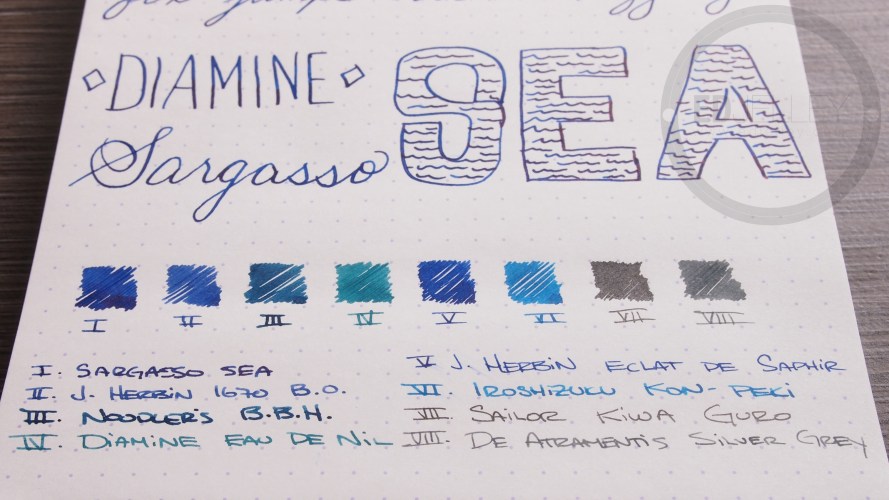 fox jumps
◇ DIAMINE ◇ SEA
Sargasso
I II III IV V VI VII VIII
I. SARGASSO SEA
II. J. HERBIN 1670 B.O.
III. NOODLER'S B.B.H.
IV. DIAMINE EAU DE NIL
V J. HERBIN ECLAT DE SAPHIR
VI. IROSHIZUKU KON-PEKI
VII. SAILOR KIWA GURO
VIII. DE ATRAMENTIS SILVER GREY